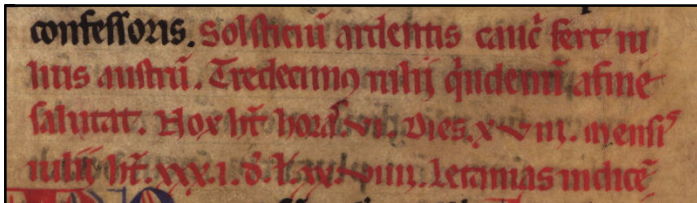 confessoris. Solsticiū ardentis canc̄ fert iu
lius austrū. Tredecimo iulij qͥndenū afine
salutat. Nox hт̄ horas .vi. Dies .xviii. mensis
iulii ht̄. xxx.i. d. l. xx.viiii. letanias indicē